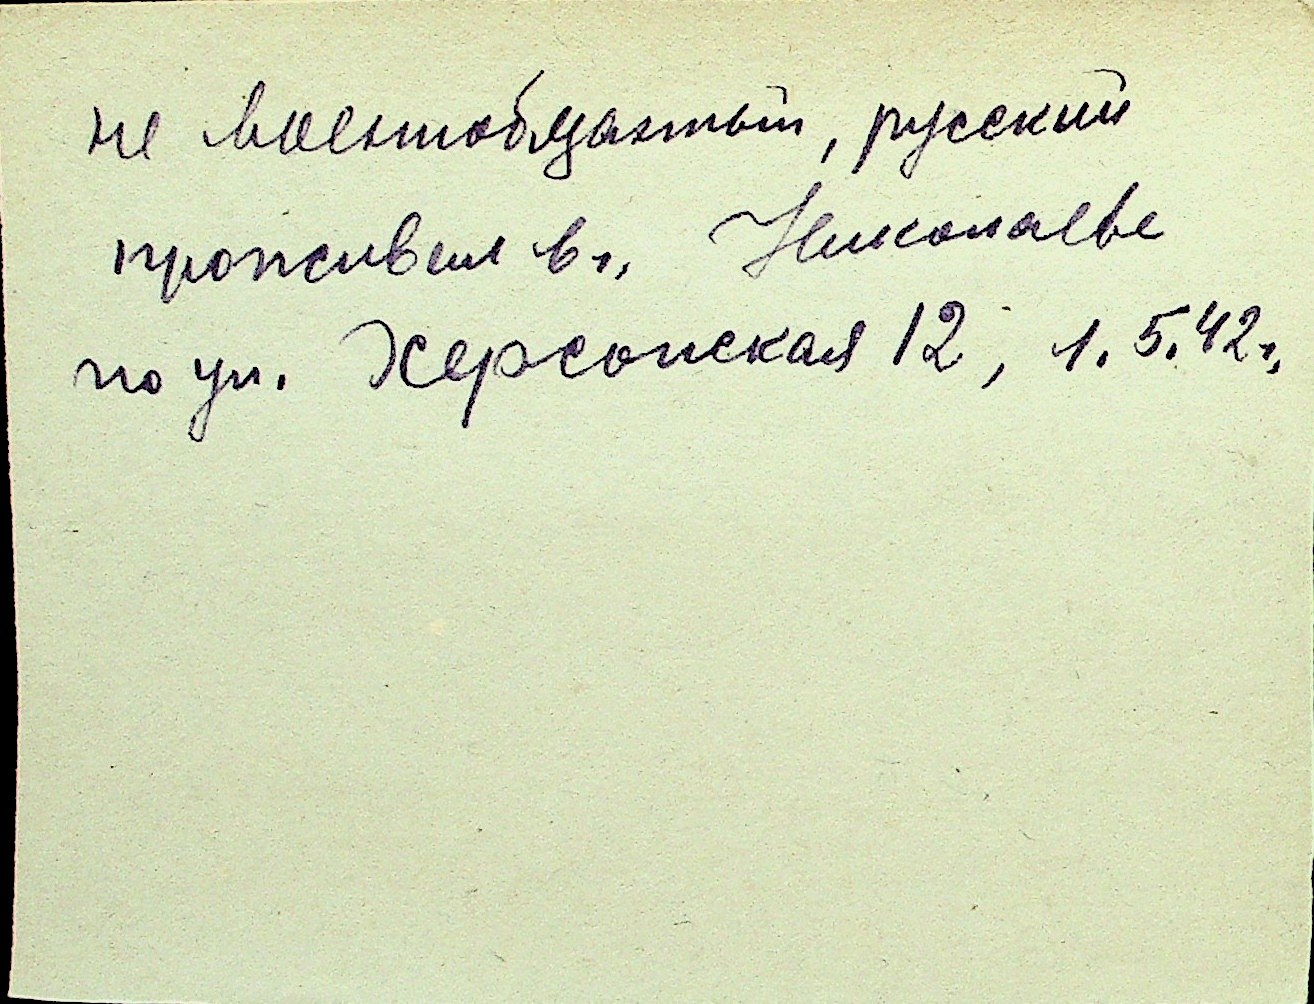 не военнобязаный, русский
проживал в г. Николаеве
по ул. Херсонская 12, 1.5.42г.